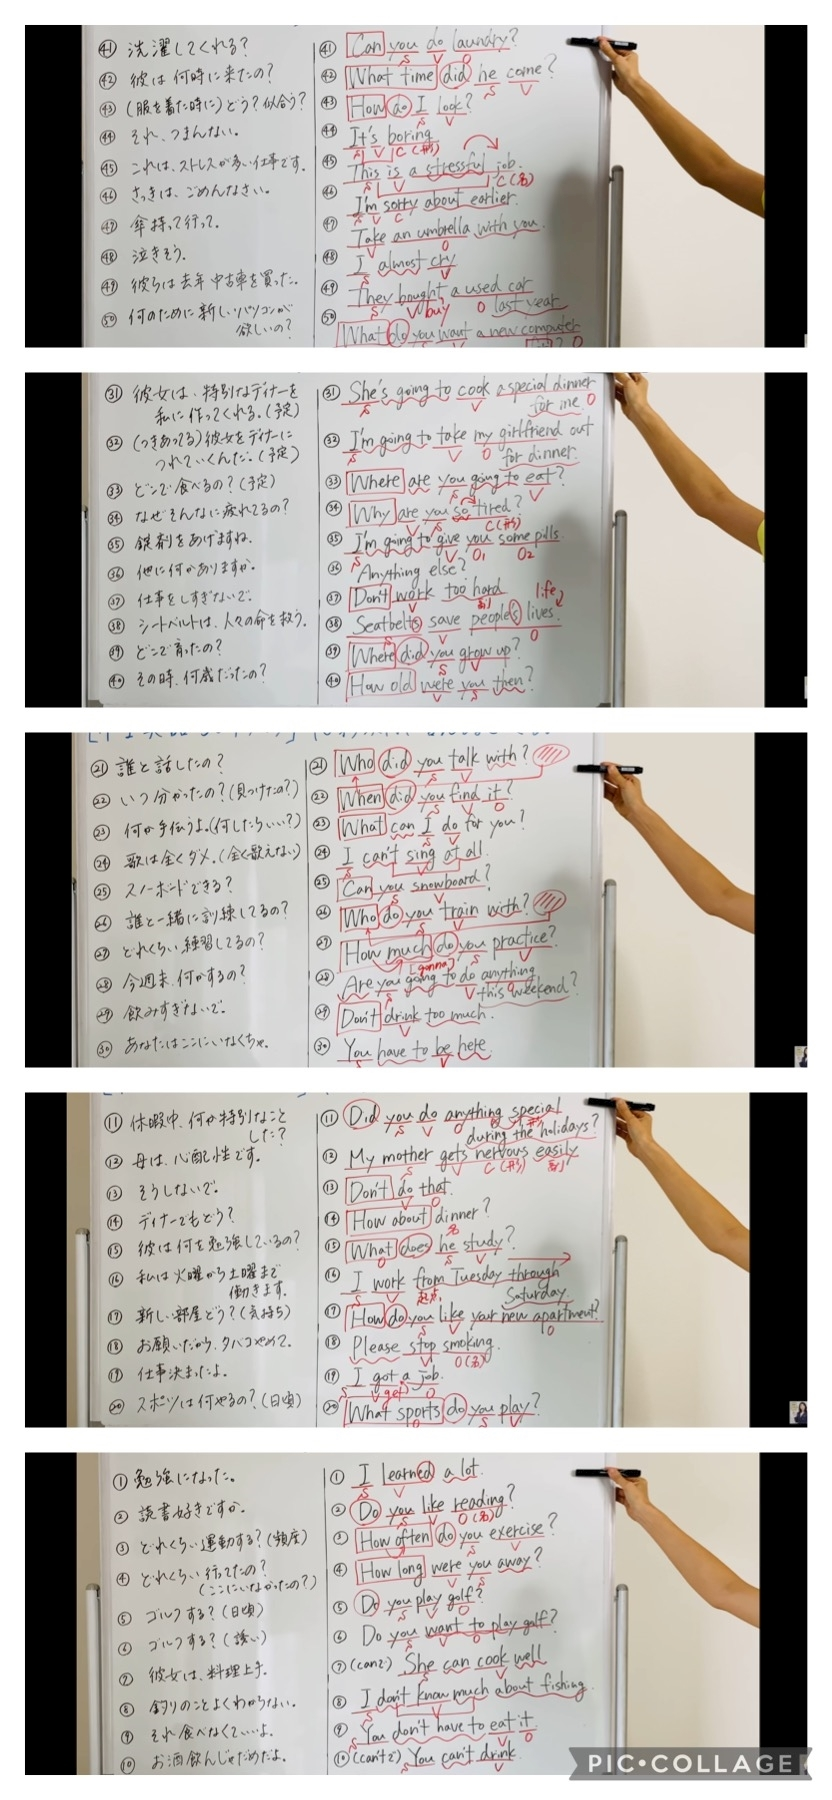 ㊶ 洗濯してくれる?
㊷ 彼は何時に来たの?
㊸ (服を着た時に)どう?似合う?
㊹ それ、つまんない。
㊺ これは、ストレスが多い仕事です。
㊻ さっきは、ごめんなさい。
㊼ 傘持って行って。
㊽ 泣きそう。
㊾ 彼らは去年中古車を買った。
㊿ 何のために新しいパソコンが
欲しいの?
㊶ Can you do laundry?
S V O
㊷ What time did he come?
S V
㊸ How do I look?
S V
㊹ It's boring
S V C(形)
㊺ This is a stressful job.
S V C(名)
㊻ I'm sorry about earlier.
S V C
㊼ Take an umbrella with you.
V O
㊽ I almost cry
S V
㊾ They bought a used car
S V buy O last year
㊿ What do you want a new computer
㉛ 彼女は、特別なディナーを
私に作ってくれる。(予定)
㉜ (つきあってる)彼女をディナーに
つれていくんだ。(予定)
㉝ どこで食べるの?(予定)
㉞ なぜそんなに疲れてるの?
㉟ 錠剤をあげますね。
㊱ 他に何かありますか。
㊲ 仕事をしすぎないで。
㊳ シートベルトは、人々の命を救う。
㊴ どこで育ったの?
㊵ その時、何歳だったの?
㉛ She's going to cook a special dinner
S V for me. O
㉜ I'm going to take my girlfriend out
S V O for dinner.
㉝ Where are you going to eat?
S V
㉞ Why are you so tired?
V S C(形)
㉟ I'm going to give you some pills.
S V O1 O2
㊱ Anything else?
㊲ Don't work too hard
V 副 life
㊳ Seatbelts save people's lives.
S V O
㊴ Where did you grow up?
S V
㊵ How old were you then?
V S
㉑ 誰と話したの?
㉒ いつ分かったの?(見つけたの?)
㉓ 何か手伝うよ。(何したらいい?)
㉔ 歌は全くダメ。(全く歌えない)
㉕ スノーボードできる?
㉖ 誰と一緒に訓練してるの?
㉗ どれくらい練習してるの?
㉘ 今週末、何かするの?
㉙ 飲みすぎないで。
㉚ あなたはここにいなくちゃ。
㉑ Who did you talk with?
S V
㉒ When did you find it?
S V O
㉓ What can I do for you?
S V
㉔ I can't sing at all.
S V
㉕ Can you snowboard?
S V
㉖ Who do you train with?
S V
㉗ How much do you practice?
(gonna) S V
㉘ Are you going to do anything
S V O this weekend?
㉙ Don't drink too much.
V
㉚ You have to be here.
S V
⑪ 休暇中、何か特別なこと
した?
⑫ 母は、心配性です。
⑬ そうしないで。
⑭ ディナーでもどう?
⑮ 彼は何を勉強しているの?
⑯ 私は火曜から土曜まで
働きます。
⑰ 新しい部屋どう?(気持ち)
⑱ お願いだから、タバコやめて。
⑲ 仕事決まったよ。
⑳ スポーツは何やるの?(日頃)
⑪ Did you do anything special
S V O 形 during the holidays?
⑫ My mother gets nervous easily
S V C(形) 副
⑬ Don't do that.
V O
⑭ How about dinner?
名
⑮ What does he study?
O S V
⑯ I work from Tuesday through
S V 起点 Saturday.
⑰ How do you like your new apartment?
S V O
⑱ Please stop smoking.
V O(名)
⑲ I got a job.
S V get O
⑳ What sports do you play?
O S V
① 勉強になった。
② 読書好きですか。
③ どれくらい運動する?(頻度)
④ どれくらい行ってたの?
(ここにいなかったの?)
⑤ ゴルフする?(日頃)
⑥ ゴルフする?(誘い)
⑦ 彼女は、料理上手。
⑧ 釣りのことよくわからない。
⑨ それ食べなくていいよ。
⑩ お酒飲んじゃだめだよ。
① I learned a lot.
S V
② Do you like reading?
S V O(名)
③ How often do you exercise?
S V
④ How long were you away?
V S
⑤ Do you play golf?
S V O
⑥ Do you want to play golf?
S V O
⑦ (canで) She can cook well
S V
⑧ I don't know much about fishing.
S V
⑨ You don't have to eat it
S V O
⑩ (can'tで) You can't drink.
S V
PIC•COLLAGE